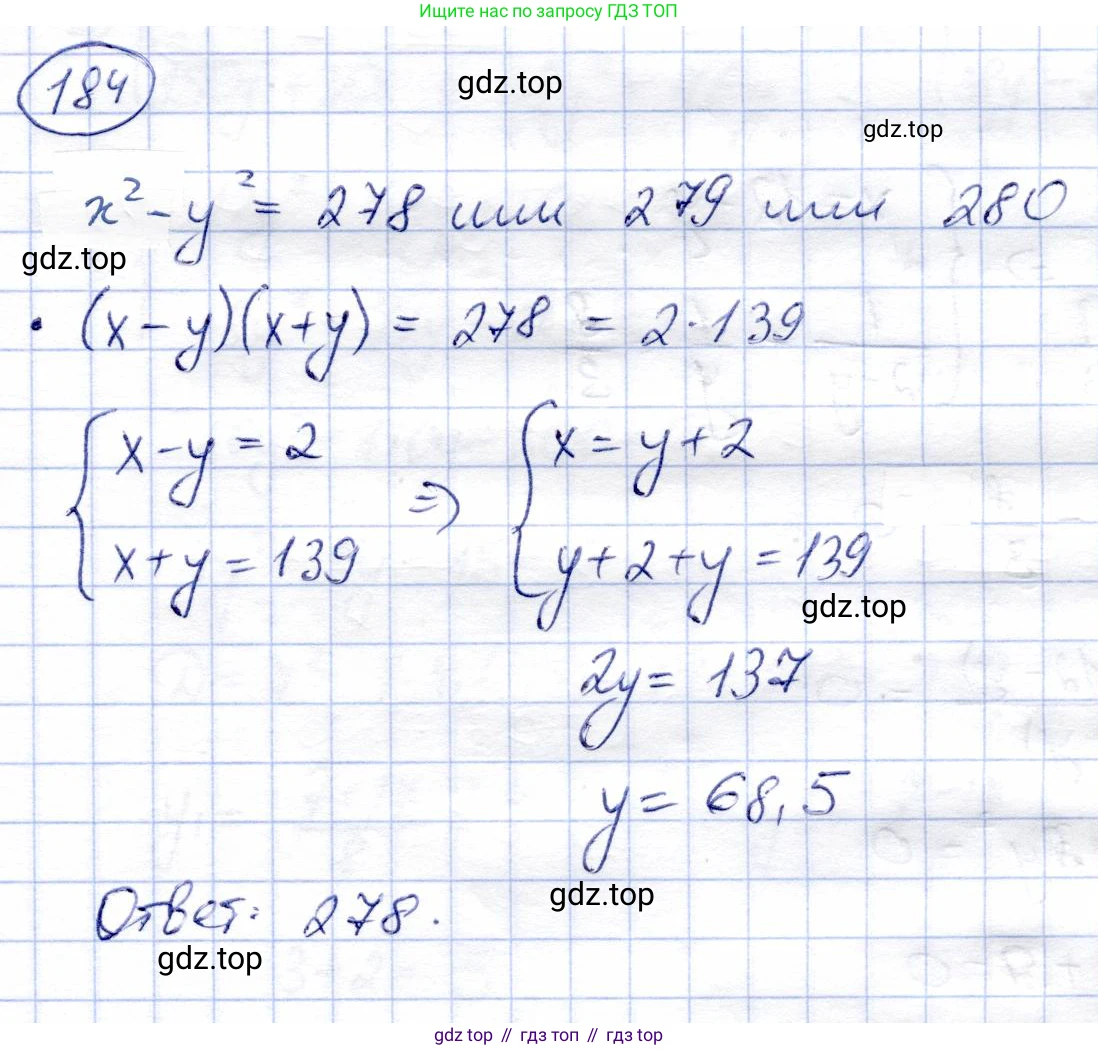 Ищите нас по запросу ГДЗ ТОП
184
gdz.top
gdz.top
x² - y² = 278 или 279 или 280
gdz.top
• (x - y)(x + y) = 278 = 2 · 139
{ x - y = 2 ⇒ { x = y + 2
x + y = 139 y + 2 + y = 139
gdz.top
2y = 137
y = 68,5
gdz.top
Ответ: 278.
gdz.top
gdz top // гдз топ // gdz top